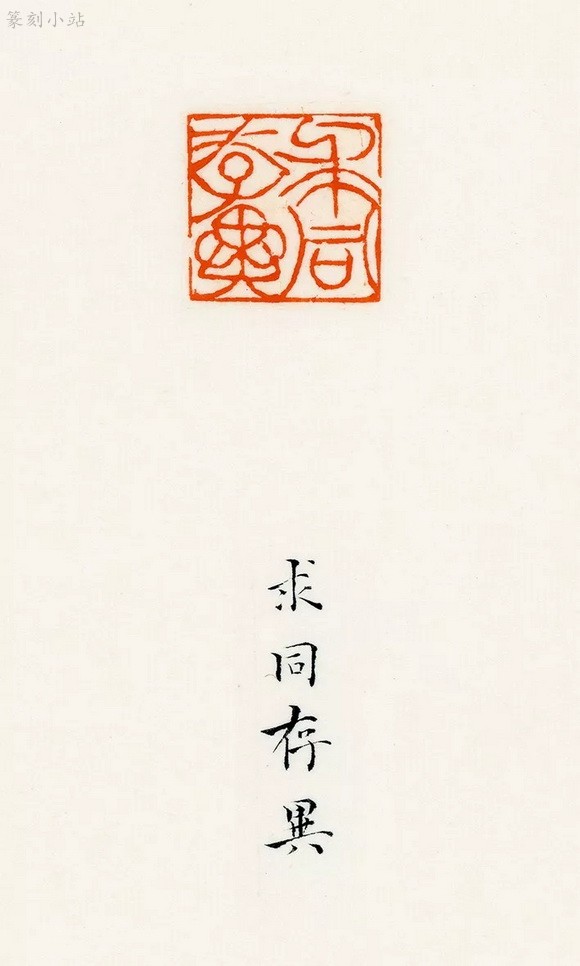 篆刻小站
求同
存異
求同存異